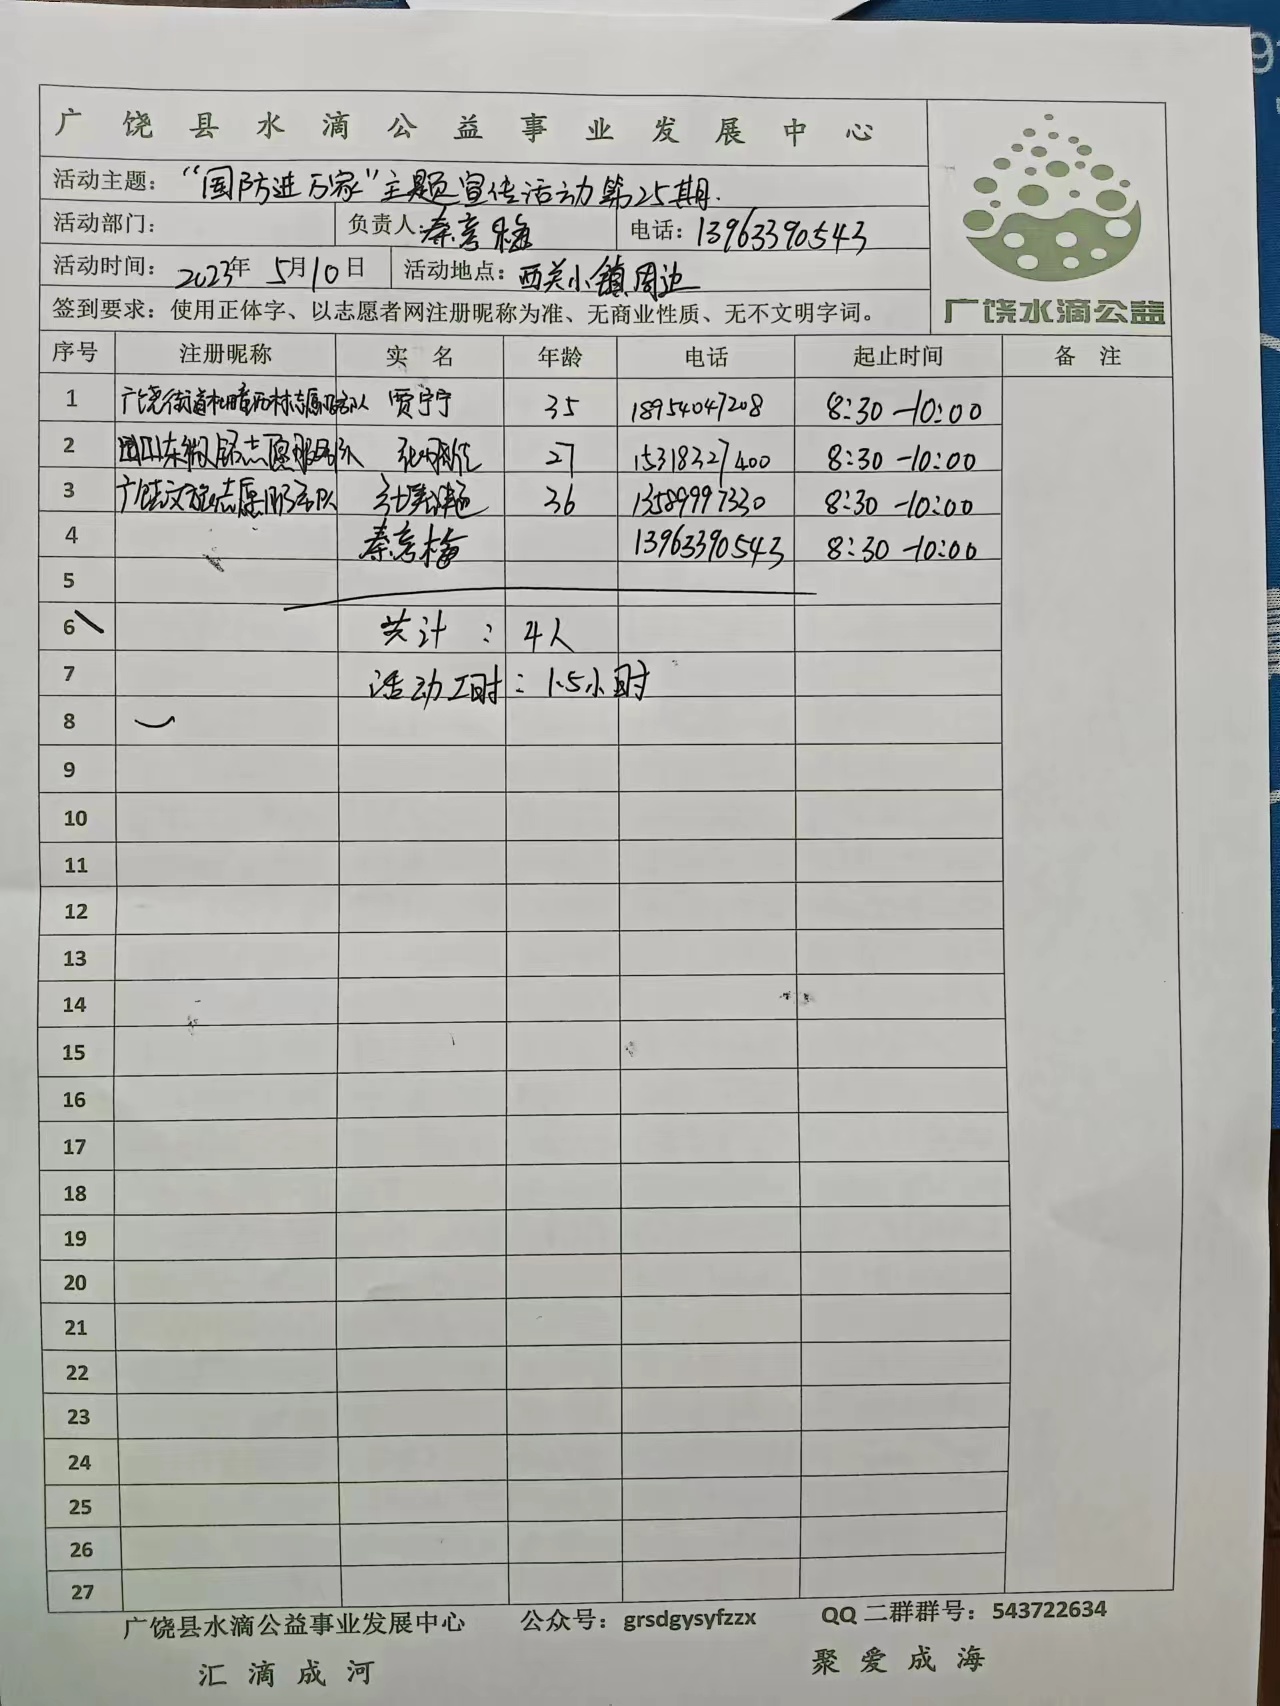 广饶县水滴公益事业发展中心
活动主题：“国防进万家”主题宣传活动第25期.
活动部门： 负责人：秦彦梅 电话：13963390543
活动时间：2023年5月10日 活动地点：西关小镇周边
签到要求：使用正体字、以志愿者网注册昵称为准、无商业性质、无不文明字词。
广饶水滴公益
序号 注册昵称 实名 年龄 电话 起止时间 备注
1 广饶街道 村志愿服务队 贾宁宁 35 18954047208 8:30-10:00
2 山东 志愿服务队 27 15318327400 8:30-10:00
3 广饶文 志愿服务队 36 13589997330 8:30-10:00
4 秦彦梅 13963390543 8:30-10:00
5
6 共计：4人
7 活动工时：1.5小时
8
9
10
11
12
13
14
15
16
17
18
19
20
21
22
23
24
25
26
27
广饶县水滴公益事业发展中心 公众号：grsdgysyfzzx QQ二群群号：543722634
汇滴成河 聚爱成海